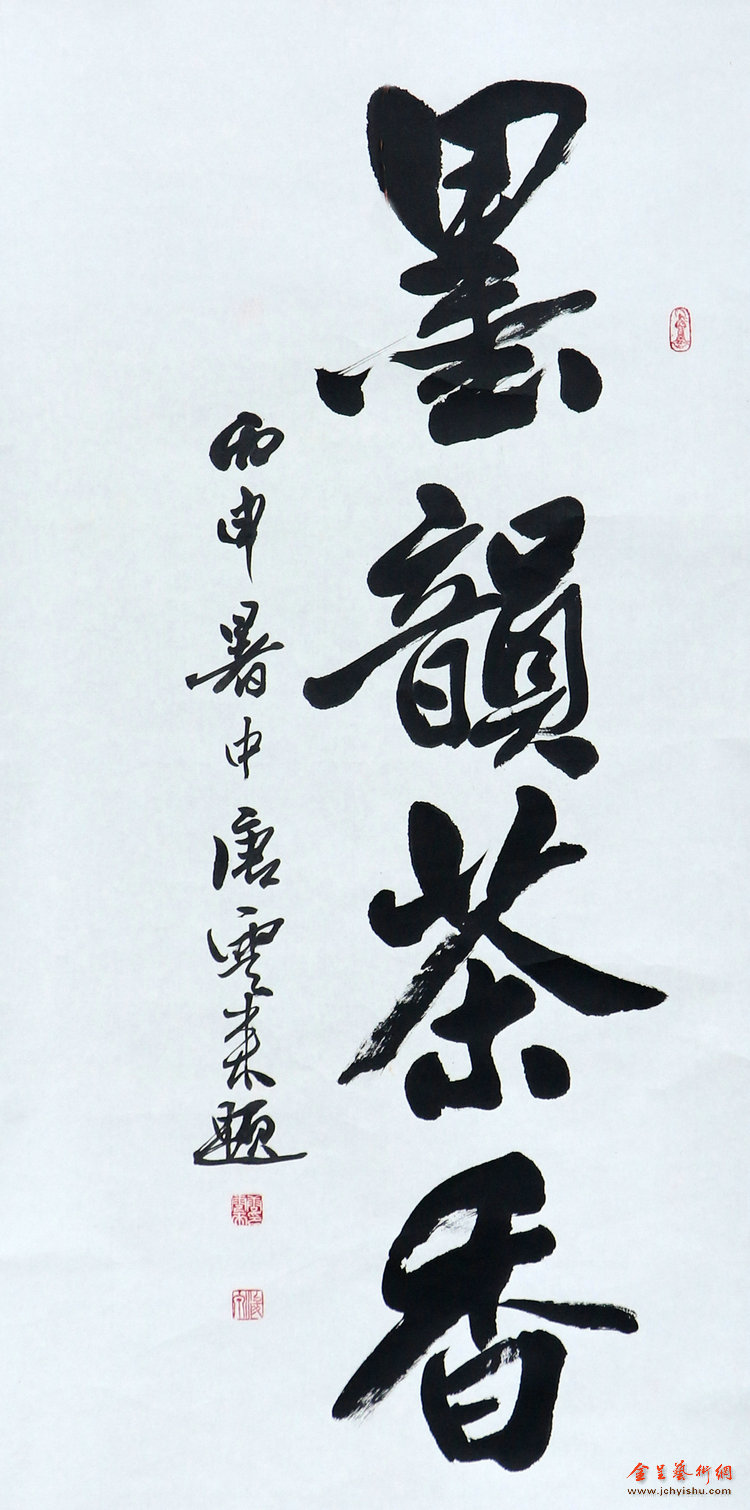 墨韻茶香
丙申暑中唐雲來題
金呈藝術網
www.jchyishu.com